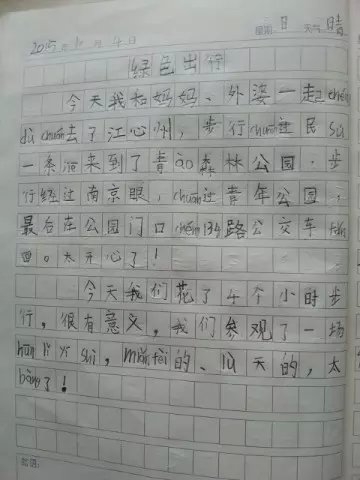 2015年10月4日 星期:日 天气:晴
绿色出行
今天我和妈妈、外婆一起chéng
dù chuán去了江心州,步行chuān过民sú
一条河来到了青ào森林公园,步
行经过南京眼,chuān过青年公园,
最后在公园门口chéng 134路公交车fǎn
回。太开心了!
今天我们花了4个小时步
行,很有意义,我们参观了一场
hūn lǐ yí shì,的、lù天的,太
bàng了!
说明: